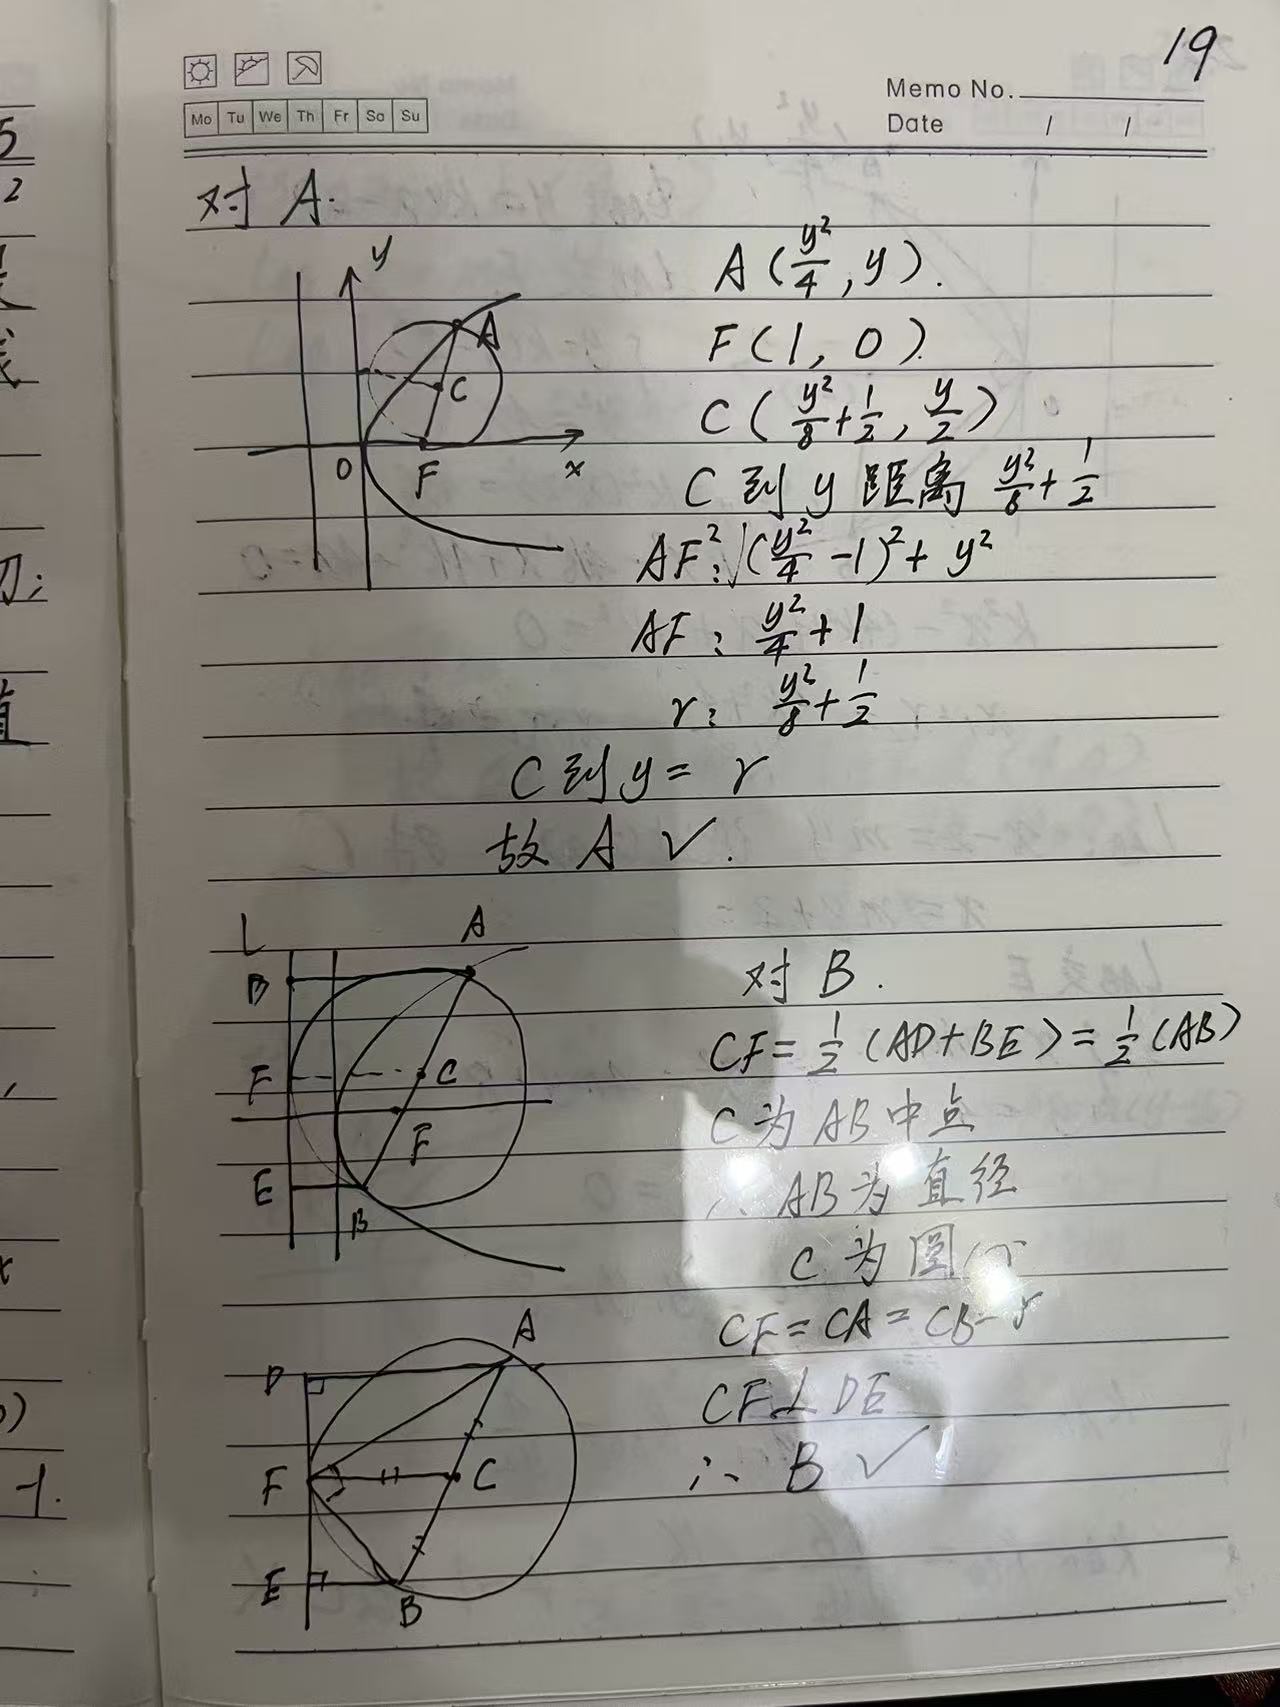 19
Memo No.
Mo Tu We Th Fr Sa Su
Date / /
对 A.
y
A
C
O F x
A ( y²/4 , y ).
F ( 1 , 0 ).
C ( y²/8 + 1/2 , y/2 )
C 到 y 距离 y²/8 + 1/2
AF²: √(y²/4 - 1)² + y²
AF: y²/4 + 1
r: y²/8 + 1/2
C 到 y = r
故 A ✓.
L A
B
F C
F
E
B
对 B.
CF = 1/2 (AD + BE) = 1/2 (AB)
C 为 AB 中点
∴ AB 为 直径
C 为 圆心
CF = CA = CB = r
CF ⊥ DE
∴ B ✓
A
D
F C
E
B